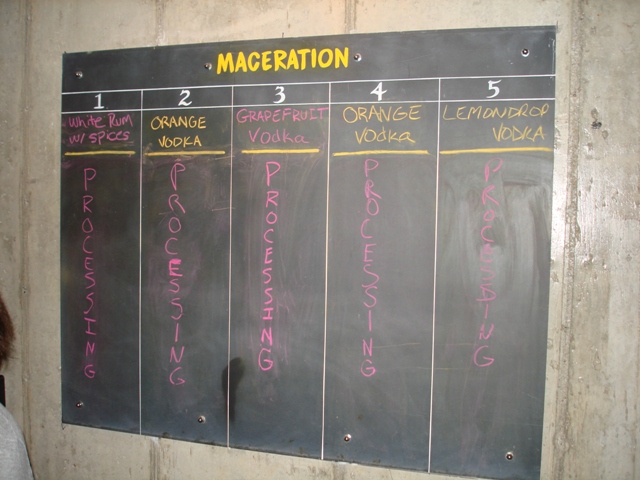 MACERATION
1
White Rum
w/ spices
PROCESSING
2
ORANGE
VODKA
PROCESSING
3
GRAPEFRUIT
Vodka
PROCESSING
4
ORANGE
Vodka
PROCESSING
5
LEMONDROP
VODKA
PROCESSING